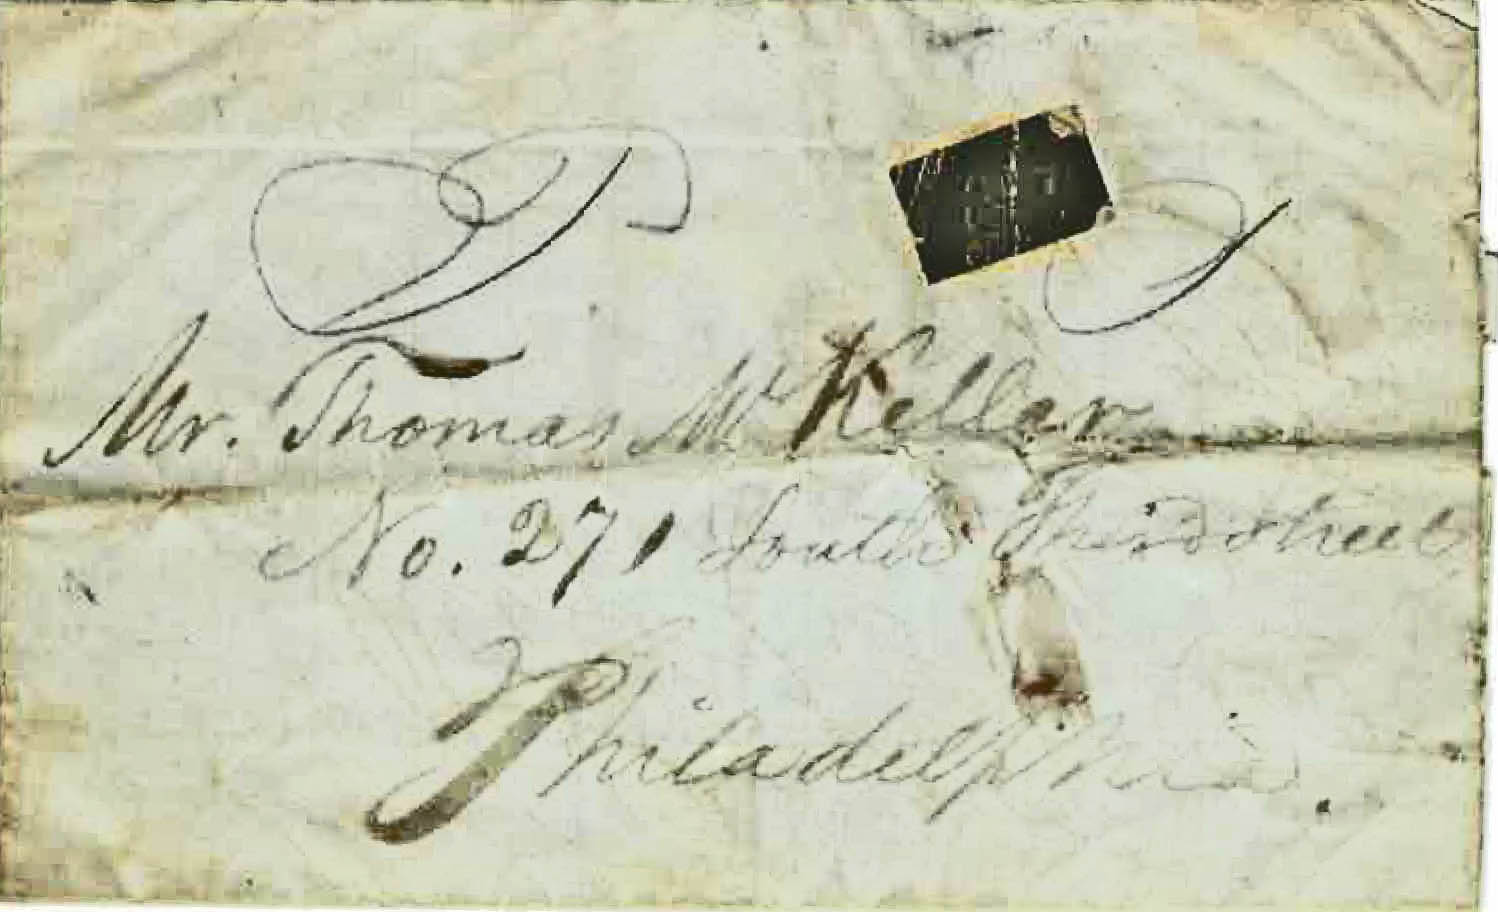 Mr. Thomas Mc Keller
No. 271 South Third street
Philadelphia.